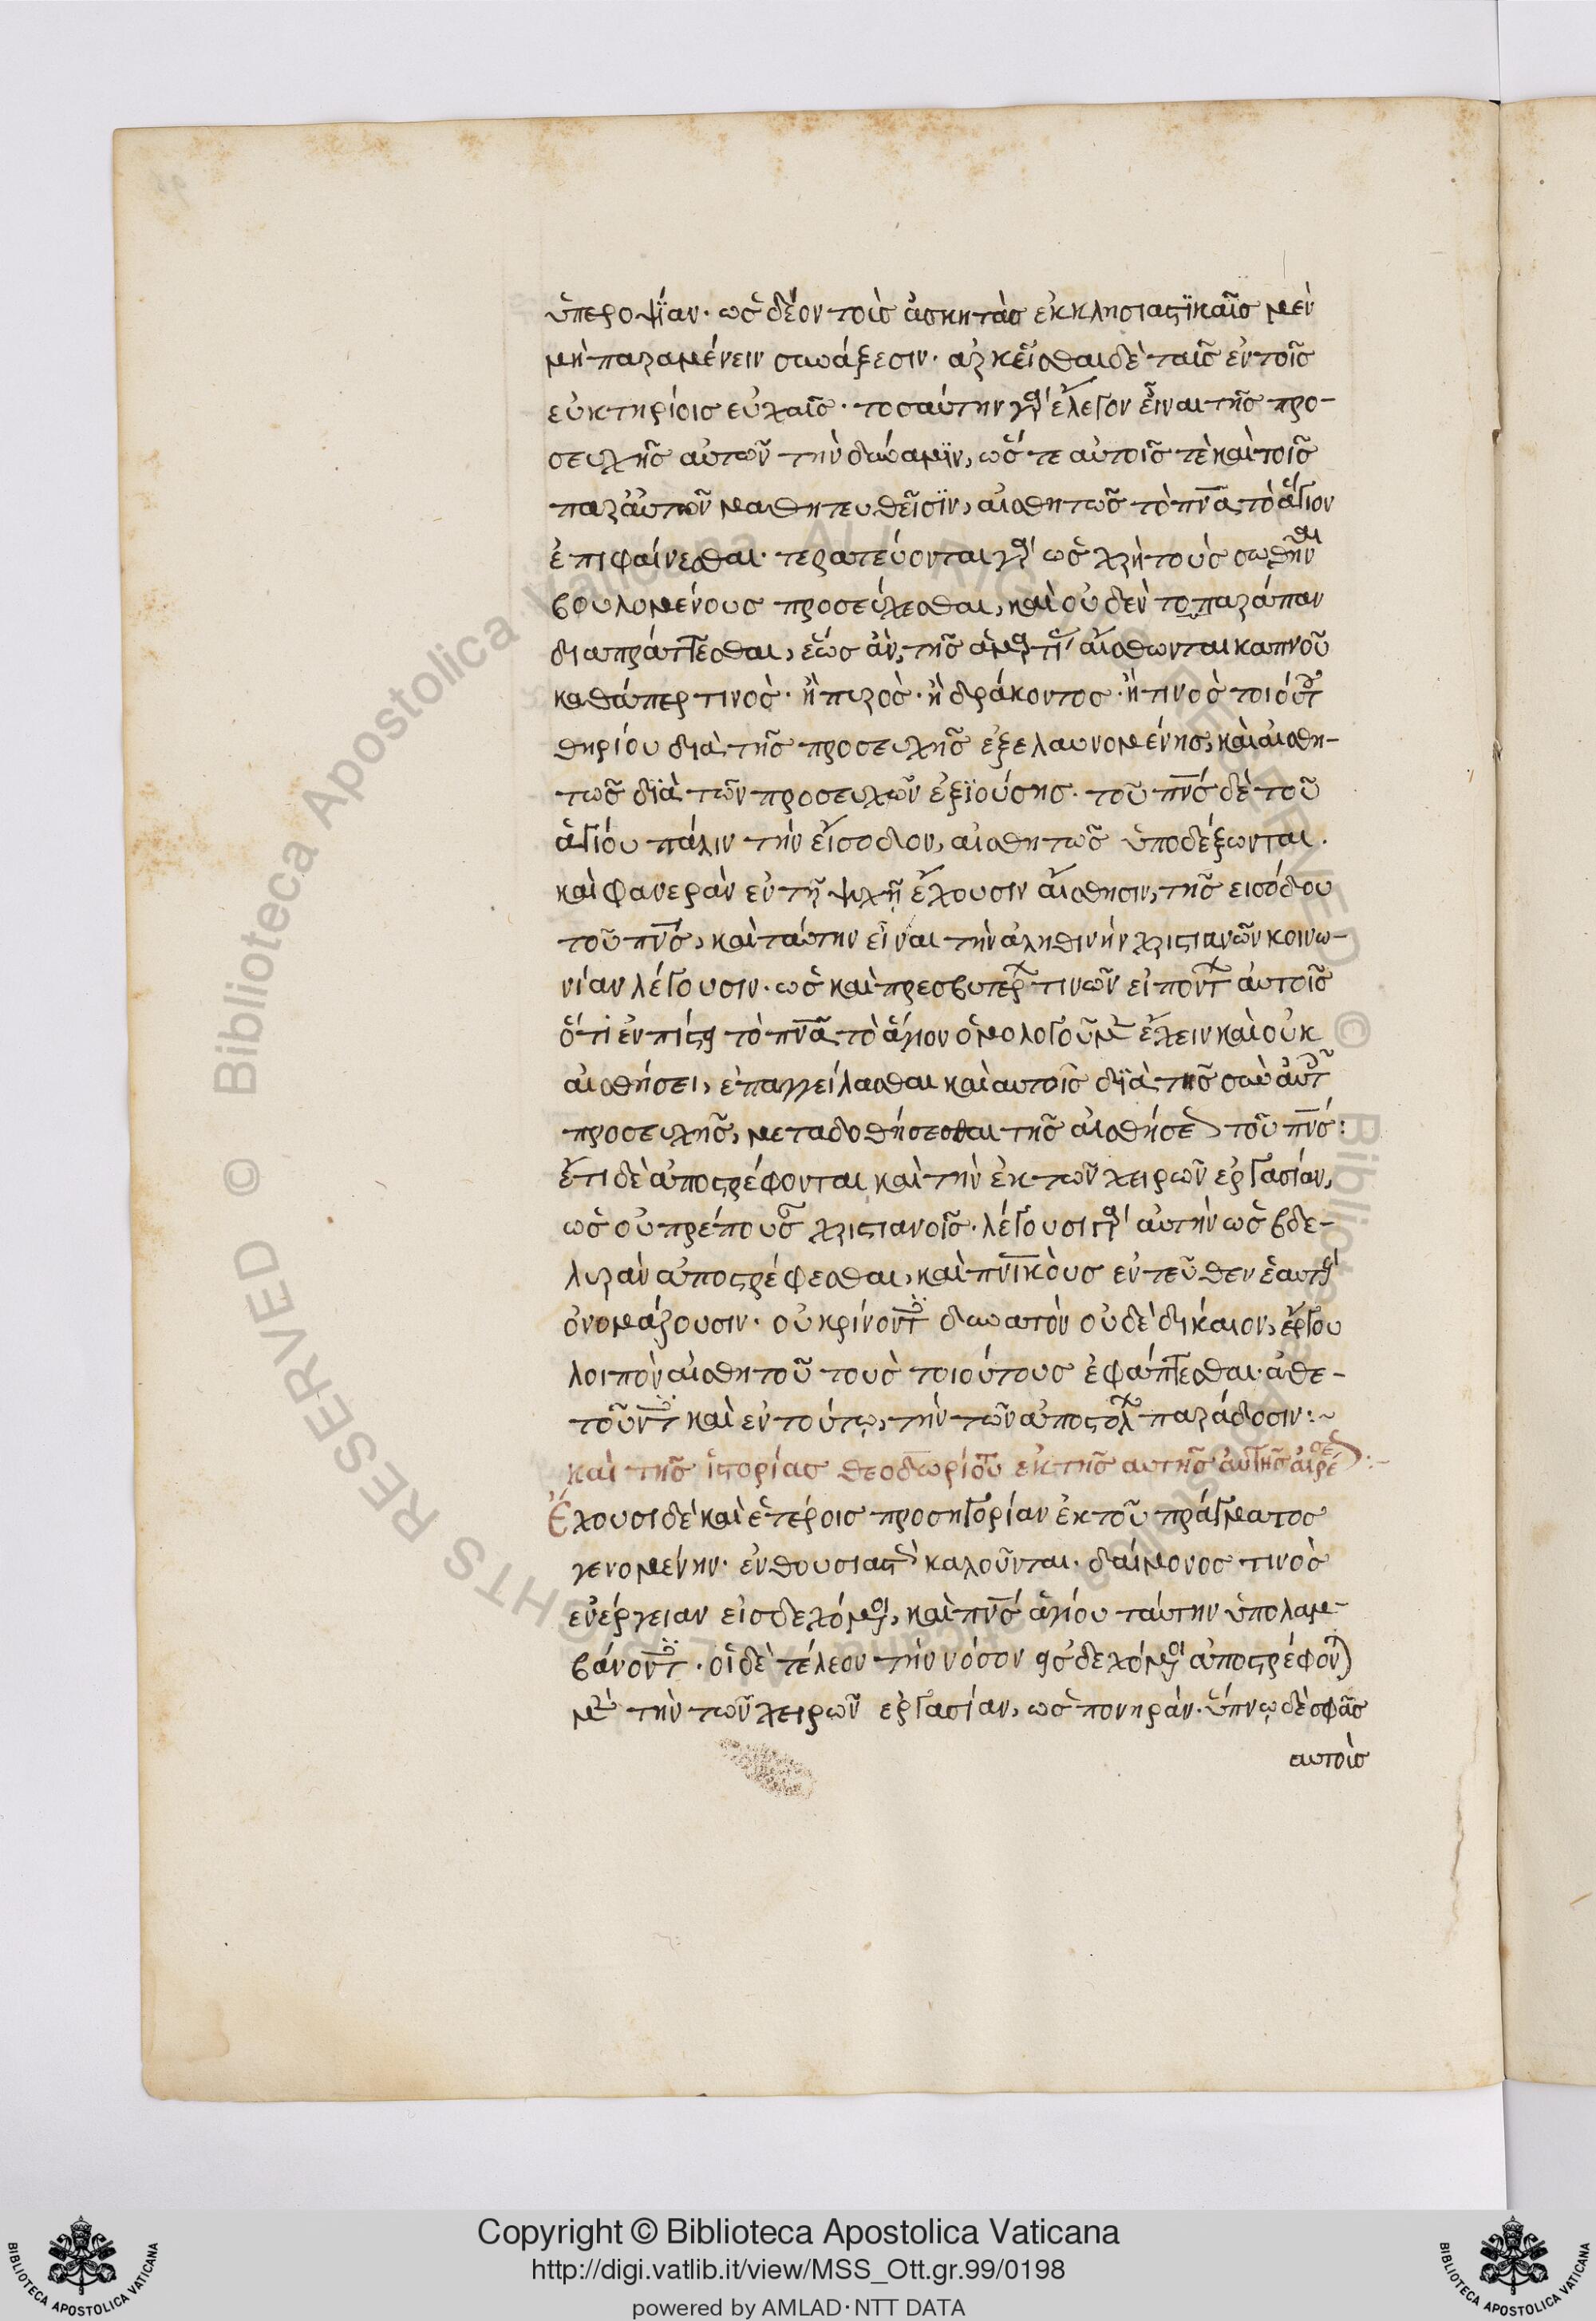 ὑπεροψΐαν· ὡς δέον τοὺς ἀσκητὰς ἐκκλησιαστϊκαῖς μὲν
μὴ παραμένειν συνάξεσιν· ἀρκεῖσθαι δὲ ταῖς ἐν τοῖς
εὐκτηρίοις εὐχαῖς· τοσαύτην γὰρ ἔλεγον εἶναι τῆς προ-
σευχῆς αὐτῶν τὴν δύναμϊν, ὥς τε αὐτοῖς τὲ καὶ τοῖς
παρ' αὐτῶν μαθητευθεῖσϊν, αἰσθητῶς τὸ πν̅α̅ τὸ ἅγιον
ἐπιφαίνεσθαι· τερατεύονται γὰρ ὡς χρὴ τοὺς σωθῆναι
βουλομένους προσεύχεσθαι, καὶ οὐδὲν το παράπαν
διαπράττεσθαι, ἕως ἂν, τῆς ἁμαρτί αἴσθωνται καπνοῦ
καθάπερ τινὸς· ἢ πυρὸς· ἢ δράκοντος· ἢ τινὸς τοιούτ
θηρίου διὰ τῆς προσευχῆς ἐξελαυνομένης, καὶ αἰσθη-
τῶς δϊὰ τῶν προσευχῶν ἐξϊούσης· τοῦ πν̅ς̅ δὲ τοῦ
ἁγίου πάλιν τὴν εἴσοδον, αἰσθητῶς ὑποδέξωνται.
καὶ φανερὰν ἐν τῇ ψυχῇ ἔχουσιν αἴσθησιν, τῆς εισόδου
τοῦ πν̅ς̅, καὶ ταύτην εἶναι τὴν ἀληθινὴν χριστιανῶν κοινω-
νίαν λέγουσιν. ὡς καὶ πρεσβυτέρ τινῶν εἰποντ αὐτοῖς
ὅτι ἐν πίστει τὸ πν̅α̅ τὸ ἅγιον ὁμολογοῦμεν ἔχειν καὶ οὐκ
αἰσθήσει, ἐπαγγείλασθαι καὶ αυτοῖς δϊὰ τῆς σὺν αὐτ
προσευχῆς, μεταδοθήσεσθαι τῆς αἰσθήσεως τοῦ πν̅ς̅:
ἔτι δὲ ἀποστρέφονται καὶ τὴν ἐκ τῶν χειρῶν ἐργασίαν,
ὡς οὐ πρέπουσ χριστιανοῖς· λέγουσι γὰρ αὐτὴν ὡς βδε-
λυρὰν ἀποστρέφεσθαι, καὶ πν̅ικοὺς ἐντεῦθεν ἑαυτ
ὀνομάζουσιν· οὐ κρίνοντες δυνατὸν οὐδὲ δίκαιον, ἔργου
λοιπὸν αἰσθητοῦ τοὺς τοιούτους ἐφάπτεσθαι· ἀθε-
τοῦντες καὶ ἐν τούτῳ, τὴν τῶν ἀποστόλων παράδοσιν:~
καὶ τῆς ἱστορίας θεοδωρίτου ἐκ τῆς αὐτῆς αἱρέσεως:~
Ἔχουσι δὲ καὶ ἑτέροις προσηγορίαν ἐκ τοῦ πράγματος
γενομένην· ἐνθουσιαστ καλοῦνται· δαίμονος τινὸς
ἐνέργειαν εἰσδεχόμενοι, καὶ πν̅ς̅ ἁγίου ταύτην ὑπολαμ-
βάνοντες· οἱ δὲ τέλεον τὴν νόσον εἰσδεχόμενοι ἀποστρέφονται
μὲν τὴν τῶν χειρῶν ἐργασίαν, ὡς πονηράν· ὕπνῳ δὲ σφᾶς
αυτοὺς
Copyright © Biblioteca Apostolica Vaticana
http://digi.vatlib.it/view/MSS_Ott.gr.99/0198
powered by AMLAD·NTT DATA